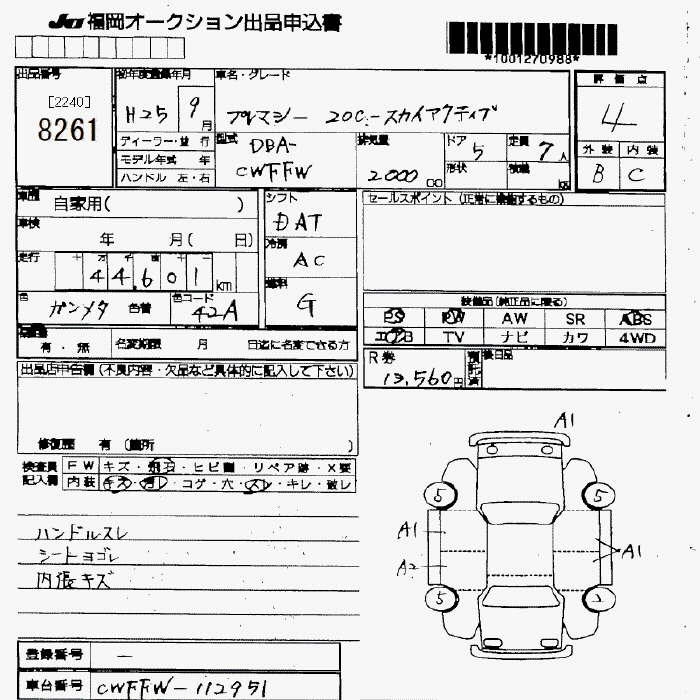 JU福岡オークション出品申込書
*1001270988*
出品番号
[2240]
8261
初年度登録年月
H25 9月
車名・グレード
プレマシー 20C-スカイアクティブ
評価点
4
外装 内装
B C
ディーラー・並行
モデル年式 年
ハンドル 左・右
型式
DBA-
CWFFW
排気量
2000 CC
ドア
5
形状
定員
7人
積載
kg
車歴
自家用( )
車検
年 月( 日)
走行
十 万 千 百 十 一
44,601 km
色
ガンメタ 色替
色コード
42A
シフト
DAT
冷房
AC
燃料
G
セールスポイント (正常に機能するもの)
装備品(純正品に限る)
PS PW AW SR ABS
エアB TV ナビ カワ 4WD
有・無
名変期限 月 日迄に名変できる方
R券
13,560円
預託済
後日品
出品店申告欄(不良内容・欠品など具体的に記入して下さい)
修復歴 有(箇所 )
検査員記入欄
FW キズ・飛石・ヒビ・リペア跡・X要
内装 キズ・汚レ・コゲ・穴・スレ・キレ・破レ
ハンドルスレ
シートヨゴレ
内張キズ
A1
5 5
A1 A1
A2
5 2
登録番号 —
車台番号 CWFFW-112951